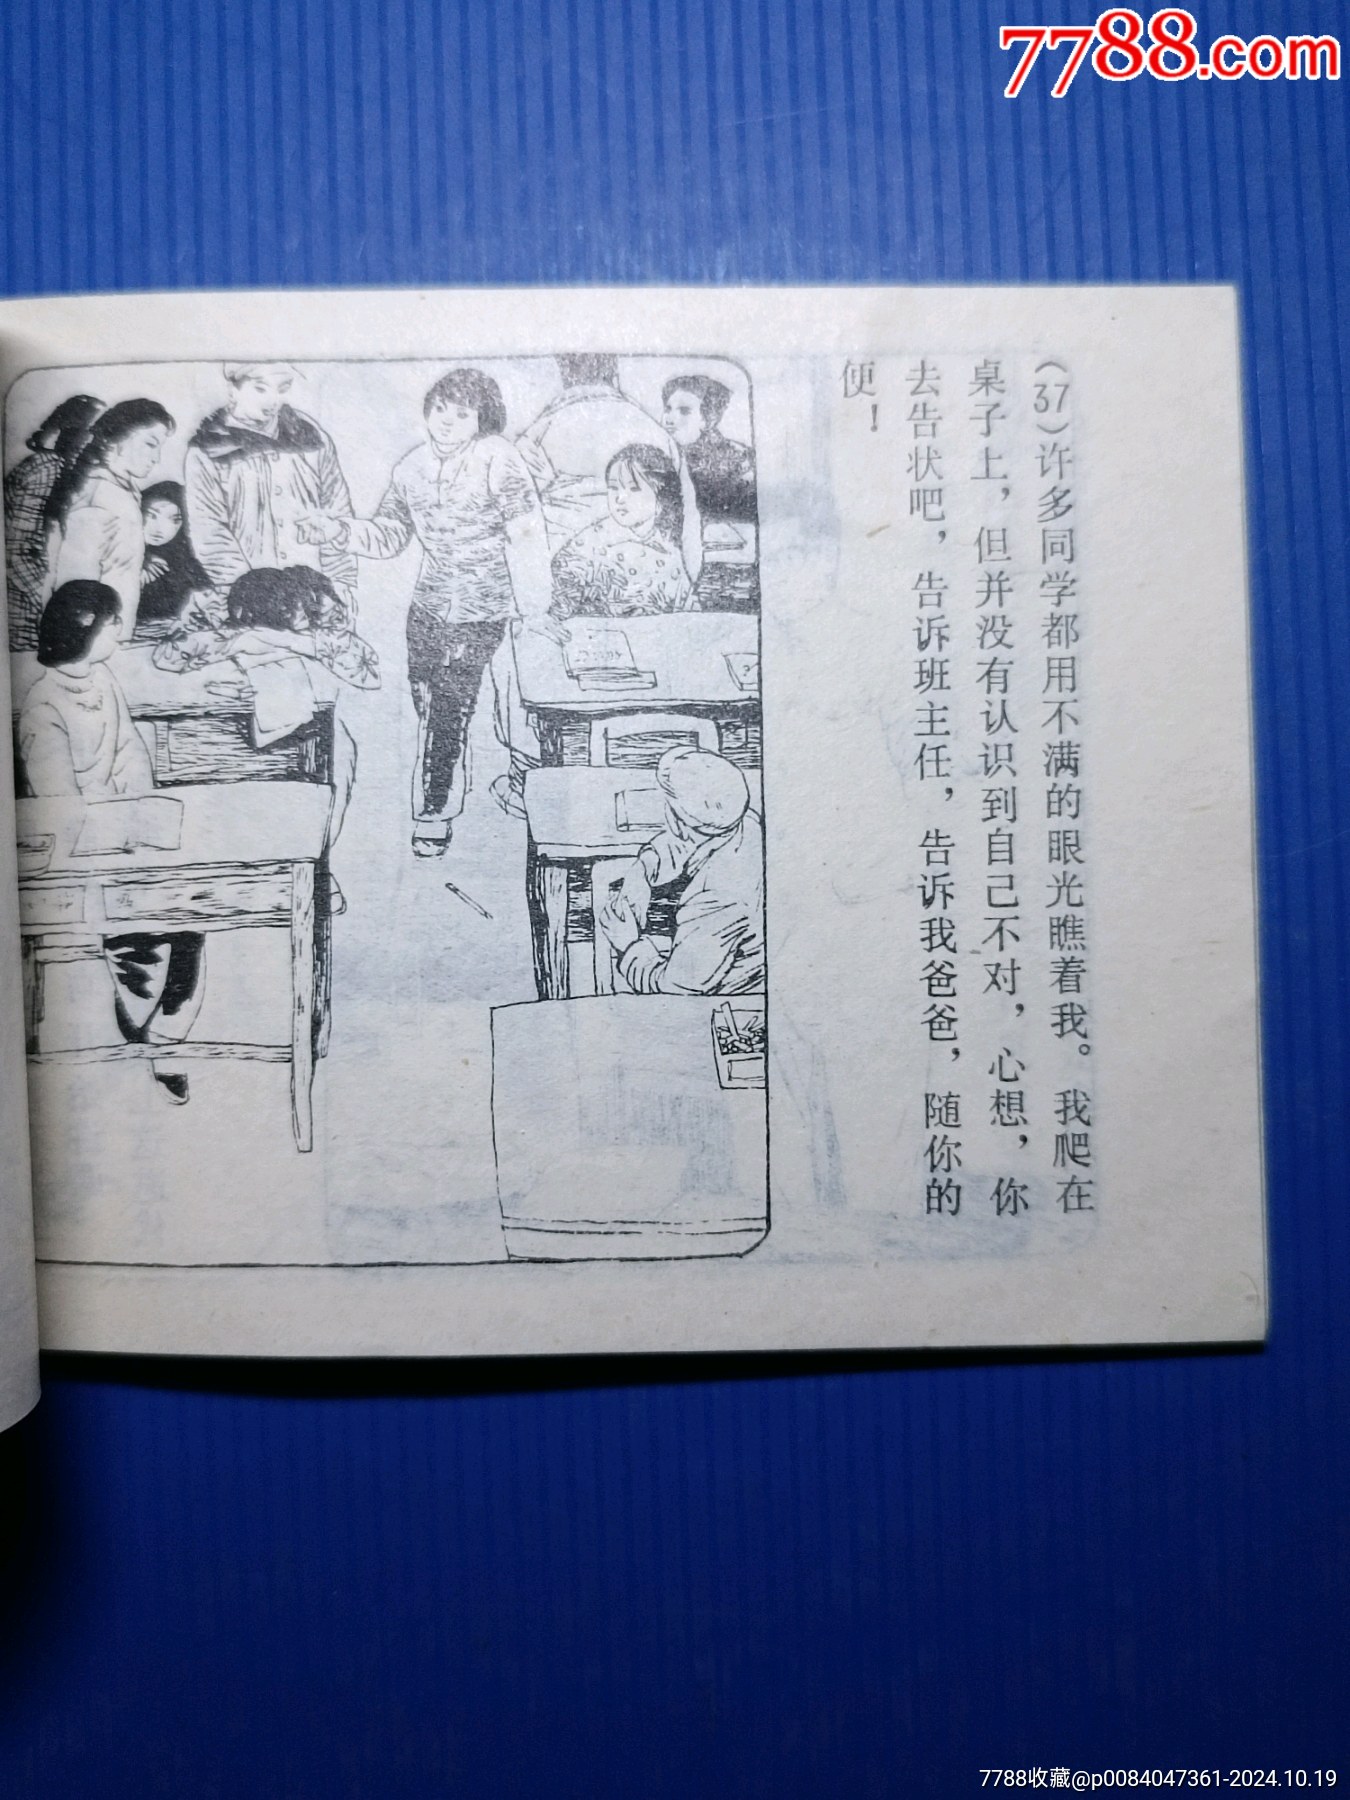 7788.com
(37)许多同学都用不满的眼光瞧着我。我爬在
桌子上，但并没有认识到自己不对，心想，你
去告状吧，告诉班主任，告诉我爸爸，随你的
便！
7788收藏@p0084047361-2024.10.19